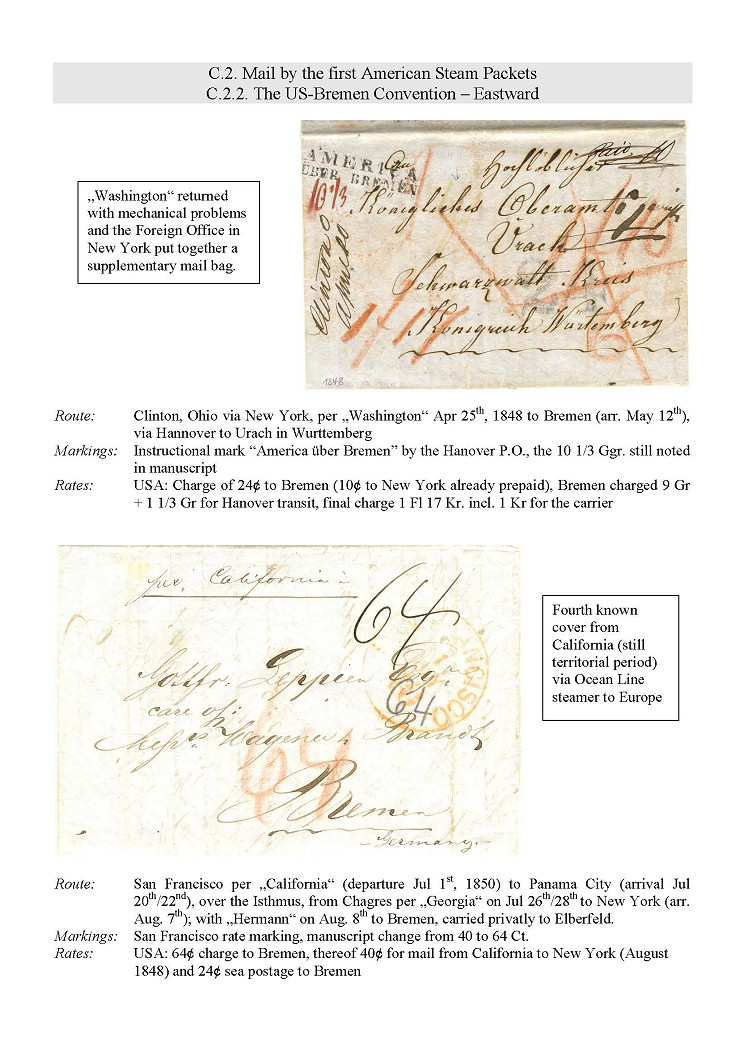 C.2. Mail by the first American Steam Packets
C.2.2. The US-Bremen Convention – Eastward
„Washington“ returned
with mechanical problems
and the Foreign Office in
New York put together a
supplementary mail bag.
AMERICA
ÜBER BREMEN
10 1/3
Paid 10
Hochlöbliches
Königliches Oberamt
Urach
Schwarzwalt Kreis
Königreich Würtemberg
Clinton O
1848
Route: Clinton, Ohio via New York, per „Washington“ Apr 25th, 1848 to Bremen (arr. May 12th),
via Hannover to Urach in Wurttemberg
Markings: Instructional mark “America über Bremen” by the Hanover P.O., the 10 1/3 Ggr. still noted
in manuscript
Rates: USA: Charge of 24¢ to Bremen (10¢ to New York already prepaid), Bremen charged 9 Gr
+ 1 1/3 Gr for Hanover transit, final charge 1 Fl 17 Kr. incl. 1 Kr for the carrier
per California
64
Gottfr. Leppien Esqr
care of
Messrs Wagener & Brandt
64
NCISCO
Bremen
Germany
Fourth known
cover from
California (still
territorial period)
via Ocean Line
steamer to Europe
Route: San Francisco per „California“ (departure Jul 1st, 1850) to Panama City (arrival Jul
20th/22nd), over the Isthmus, from Chagres per „Georgia“ on Jul 26th/28th to New York (arr.
Aug. 7th); with „Hermann“ on Aug. 8th to Bremen, carried privatly to Elberfeld.
Markings: San Francisco rate marking, manuscript change from 40 to 64 Ct.
Rates: USA: 64¢ charge to Bremen, thereof 40¢ for mail from California to New York (August
1848) and 24¢ sea postage to Bremen